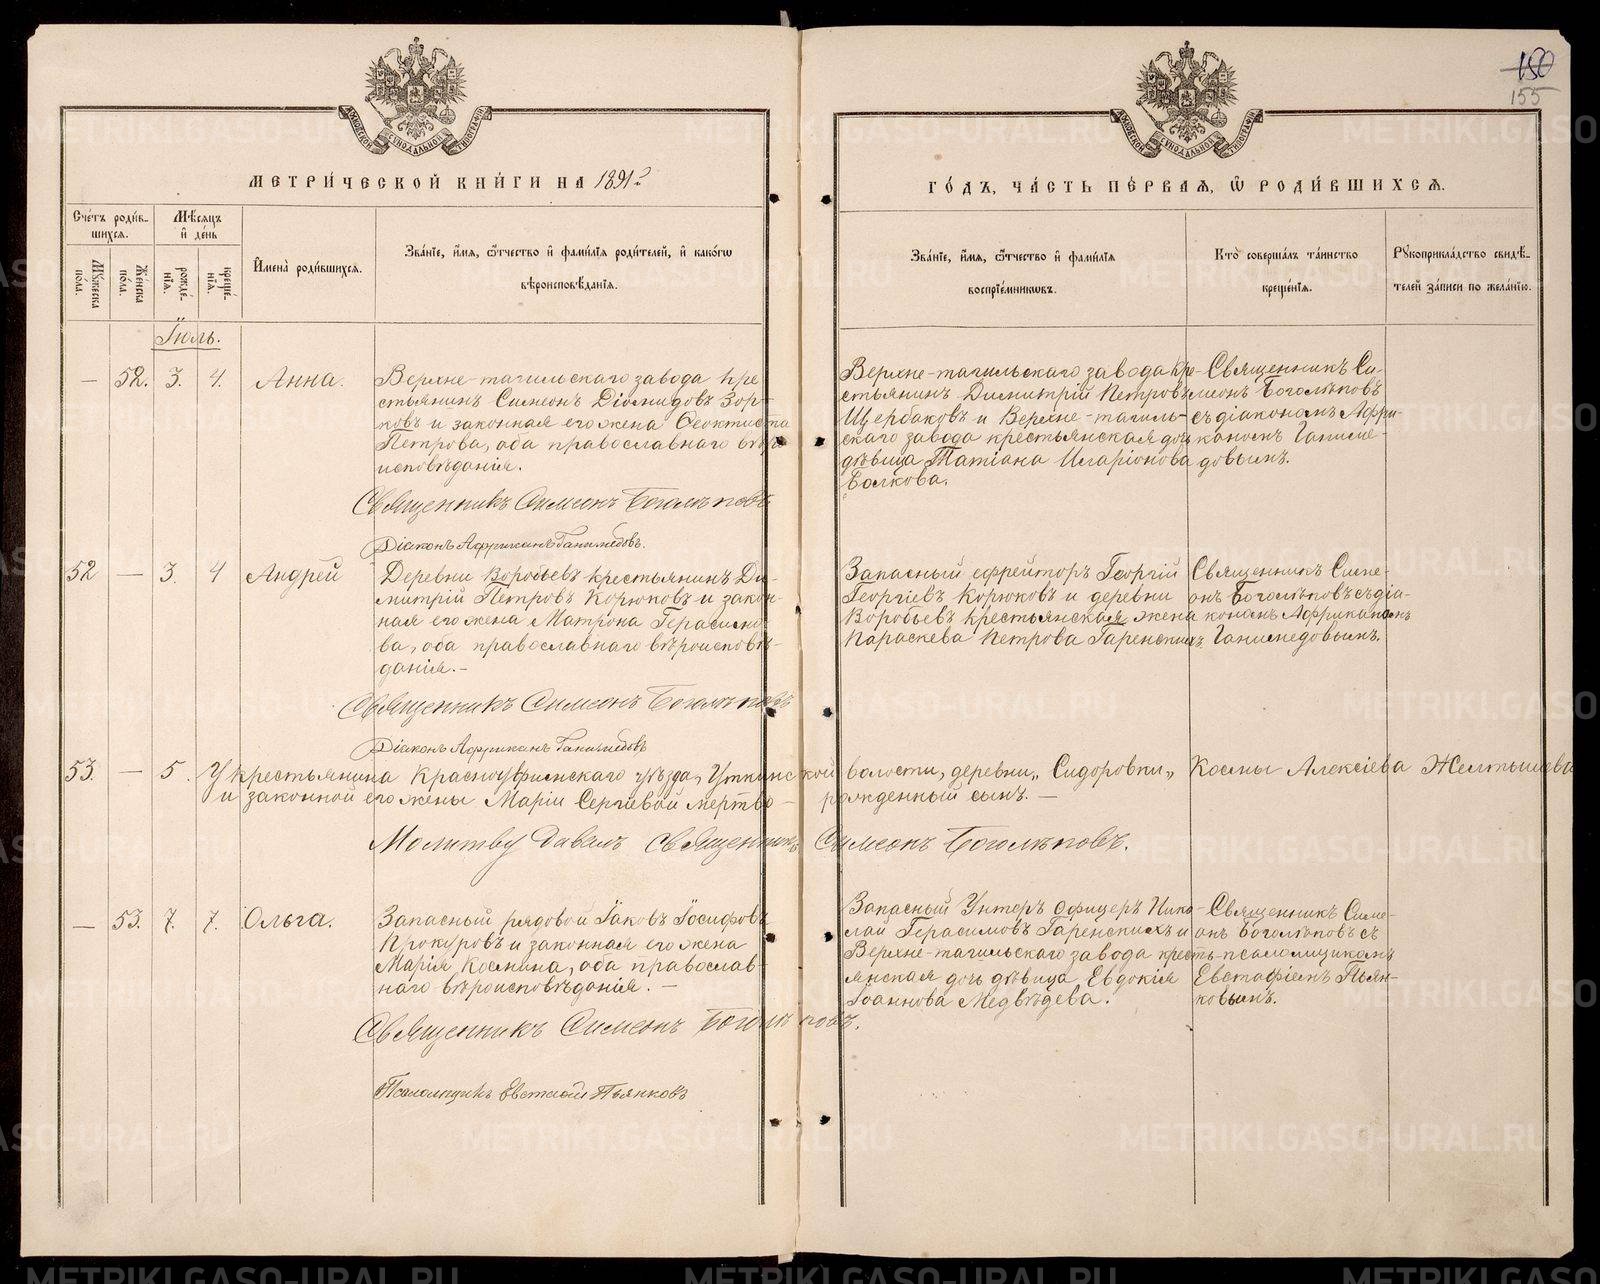 150
155
МОСКОВСКОЙ СѴНОДАЛЬНОЙ ТИПОГРАФІИ
МОСКОВСКОЙ СѴНОДАЛЬНОЙ ТИПОГРАФІИ
МЕТРИ́ЧЕСКОЙ КНИ́ГИ НА 1891 г.
ГО́ДЪ, ЧА́СТЬ ПЕ́РВАЯ, Ѿ РОДИ́ВШИХСЯ.
Счетъ родившихся.
Мужеска пола.
Женска пола.
Мѣсяцъ и день
рожденія.
крещенія.
Имена родившихся.
Званіе, имя, отчество и фамилія родителей, и какогѡ
вѣроисповѣданія.
Званіе, имя, отчество и фамилія
воспріемниковъ.
Кто совершалъ таинство
крещенія.
Рукоприкладство свидѣ-
телей записи по желанію.
Іюль.
— 52. 3. 4. Анна.
Верхне-тагильскаго завода кре
стьянинъ Симеонъ Діомидовъ Зор-
ковъ и законная его жена Ѳеоктиста
Петрова, оба православнаго вѣро
исповѣданія.
Священникъ Симеонъ Боголѣповъ
Діаконъ Африканъ Ганимедовъ.
Верхне-тагильскаго завода кре-
стьянинъ Димитрій Петровъ
Щербаковъ и Верхне-тагиль-
скаго завода крестьянская дочь
дѣвица Татіана Иларіонова
Волкова.
Священникъ Си-
меонъ Боголѣповъ
съ діакономъ Афри-
каномъ Ганиме-
довымъ.
52 — 3. 4 Андрей
Деревни Воробьевъ крестьянинъ Ди-
митрій Петровъ Корюковъ и закон-
ная его жена Матрона Герасимо-
ва, оба православнаго вѣроисповѣ-
данія.—
Священникъ Симеонъ Боголѣповъ
Діаконъ Африканъ Ганимедовъ
Запасный ефрейторъ Георгій
Георгіевъ Корюковъ и деревни
Воробьевъ крестьянская жена
Параскева Петрова Гаренскихъ
Священникъ Симе-
онъ Боголѣповъ съ діа-
кономъ Африканомъ
Ганимедовымъ.
53. — 5. У крестьянина Красноуфимскаго уѣзда, Уткинской волости, деревни „Сидоровки„ Космы Алексіева Желтышева
и законной его жены Маріи Сергіевой мертво- рожденный сынъ.—
Молитву давалъ Священникъ Симеонъ Боголѣповъ.
— 53. 7. 7. Ольга.
Запасный рядовой Іаковъ Іосифовъ
Прокуровъ и законная его жена
Марія Космина, оба православ-
наго вѣроисповѣданія.—
Священникъ Симеонъ Боголѣповъ.
Псаломщикъ Евстафій Пьянковъ
Запасный Унтеръ офицеръ Нико-
лай Герасимовъ Гаренскихъ и
Верхне-тагильскаго завода кресть-
янская дочь дѣвица Евдокія
Іоаннова Медвѣдева.
Священникъ Симе-
онъ Боголѣповъ съ
псаломщикомъ
Евстафіемъ Пьян-
ковымъ.
METRIKI.GASO-URAL.RU